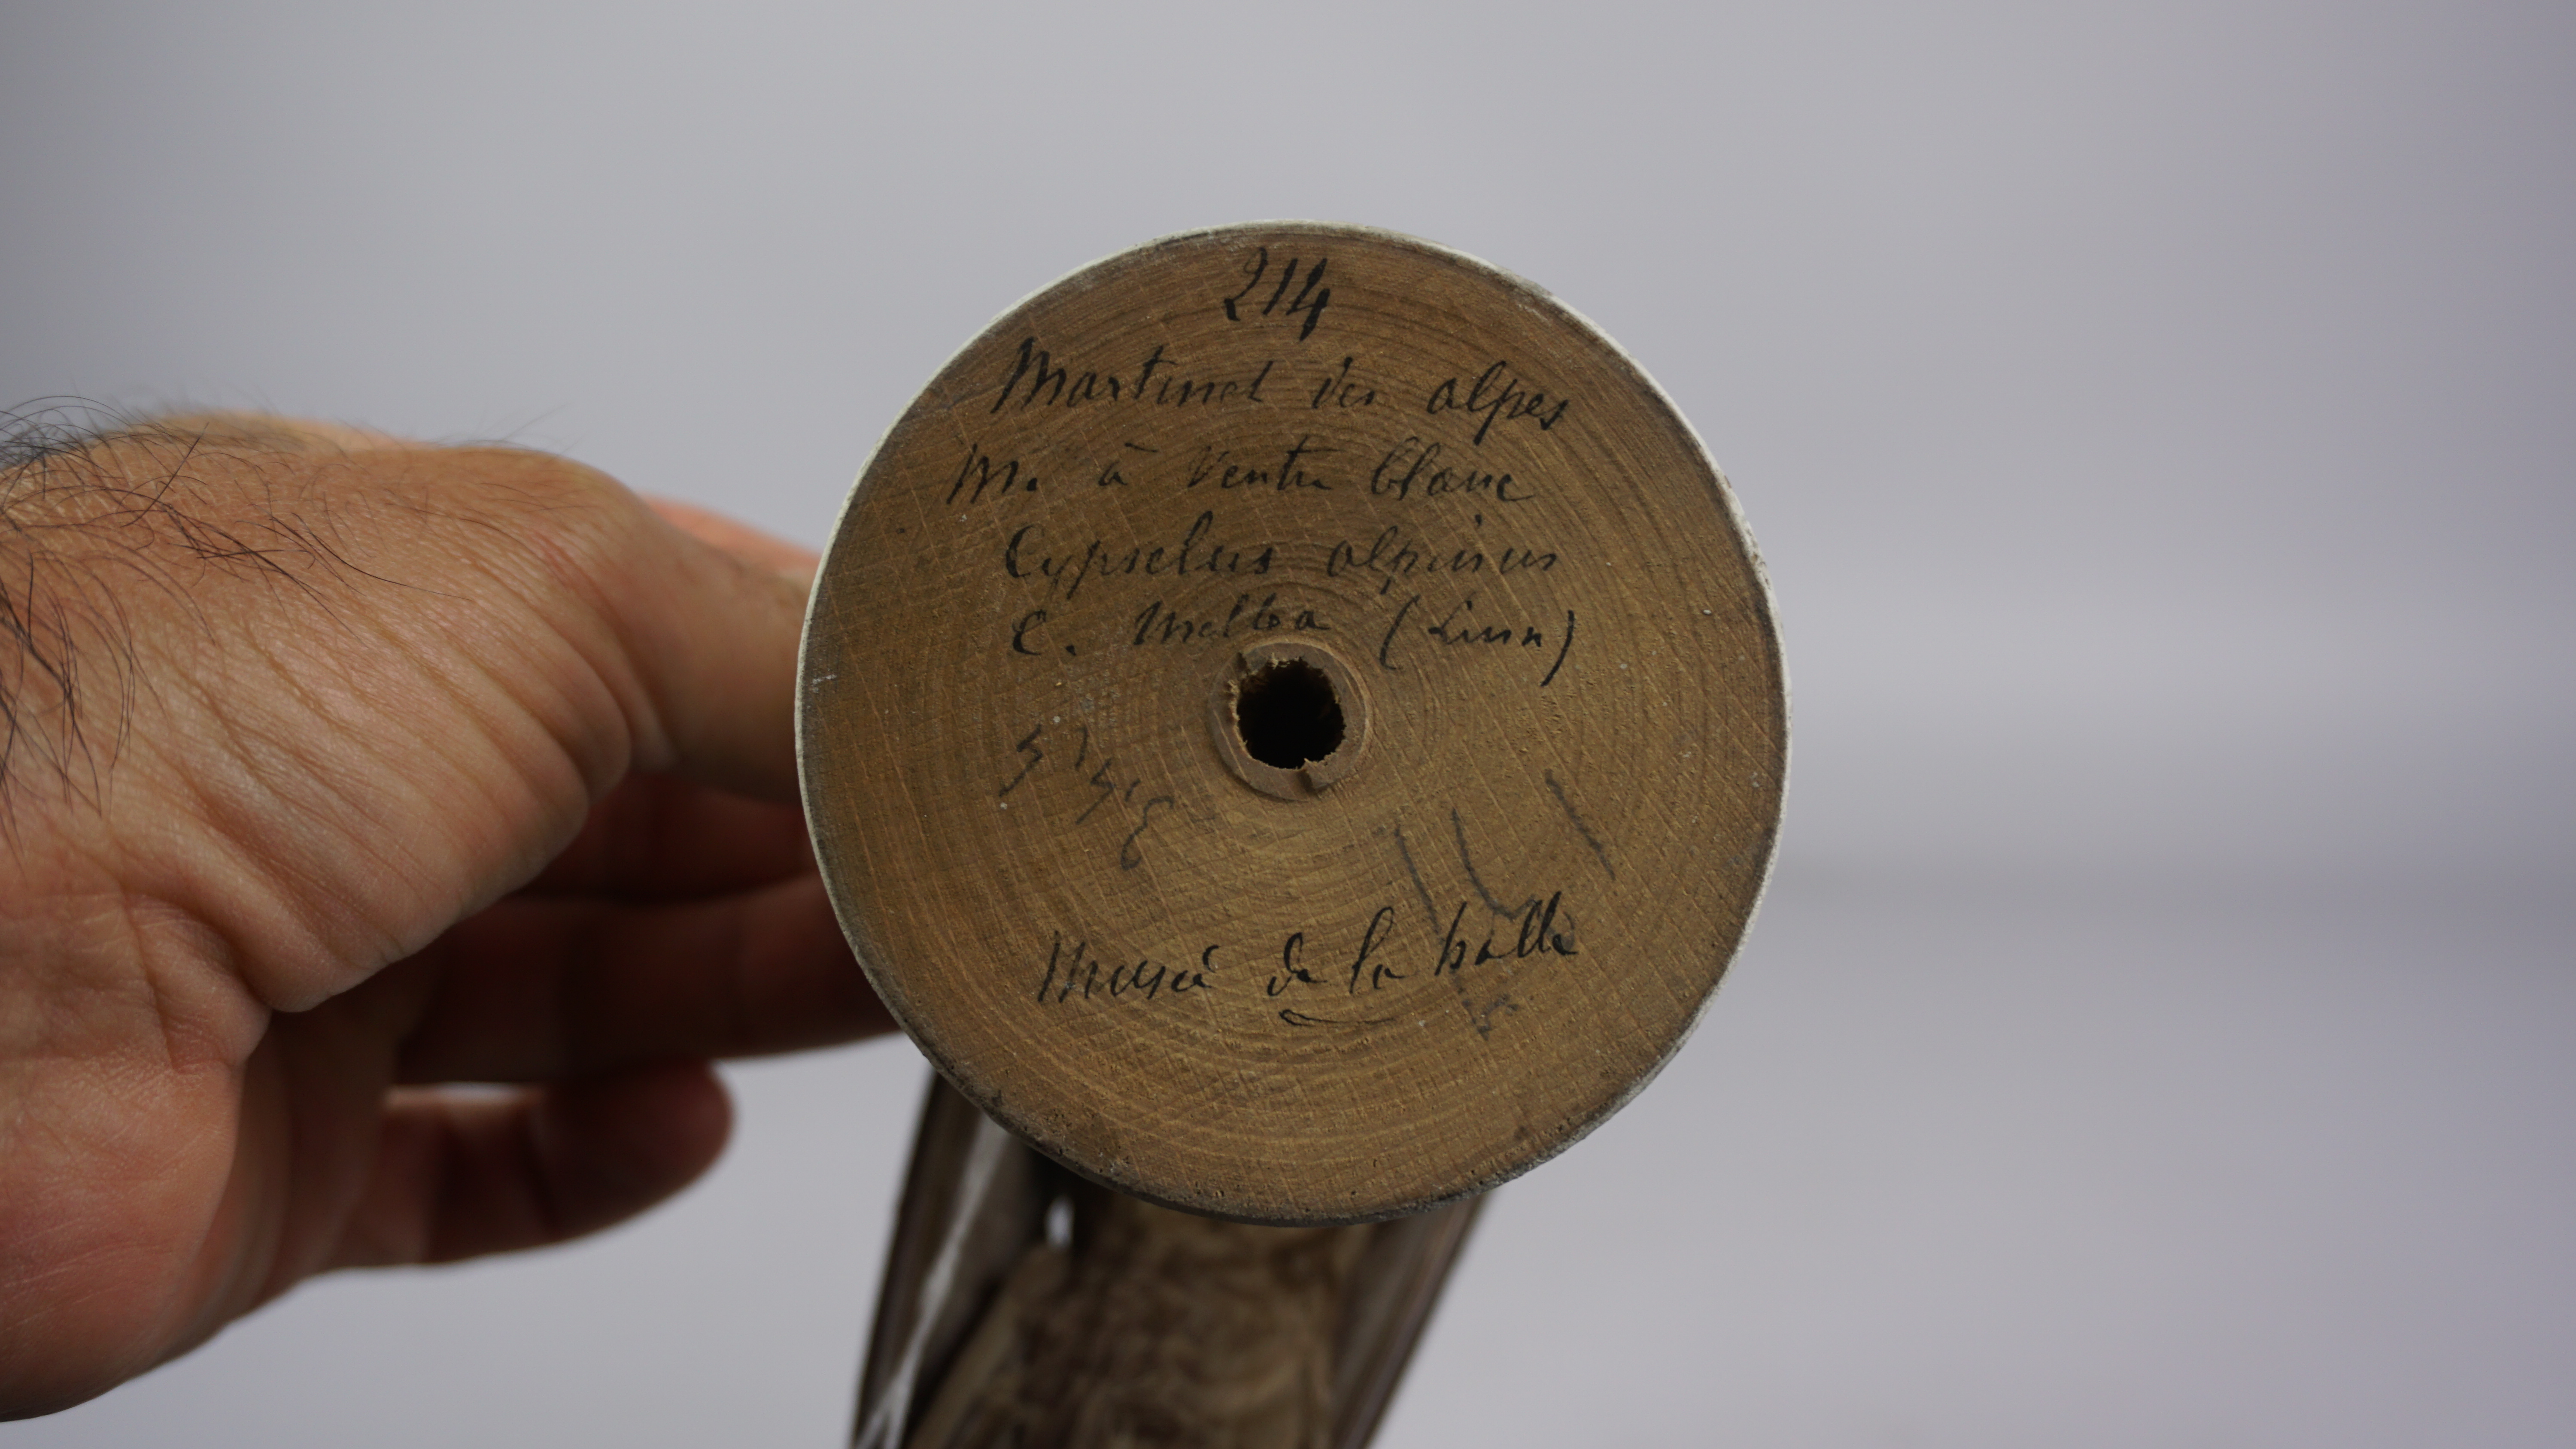 214
Martinet des alpes
M. à ventre blanc
Cypselus alpinus
C. Melba (Linn)
Musée de la halle